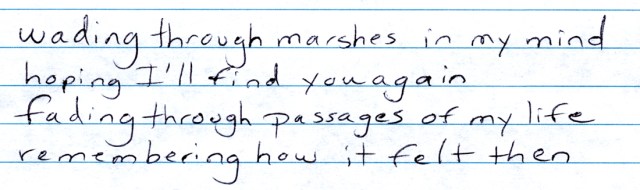 wading through marshes in my mind
hoping I'll find you again
fading through passages of my life
remembering how it felt then